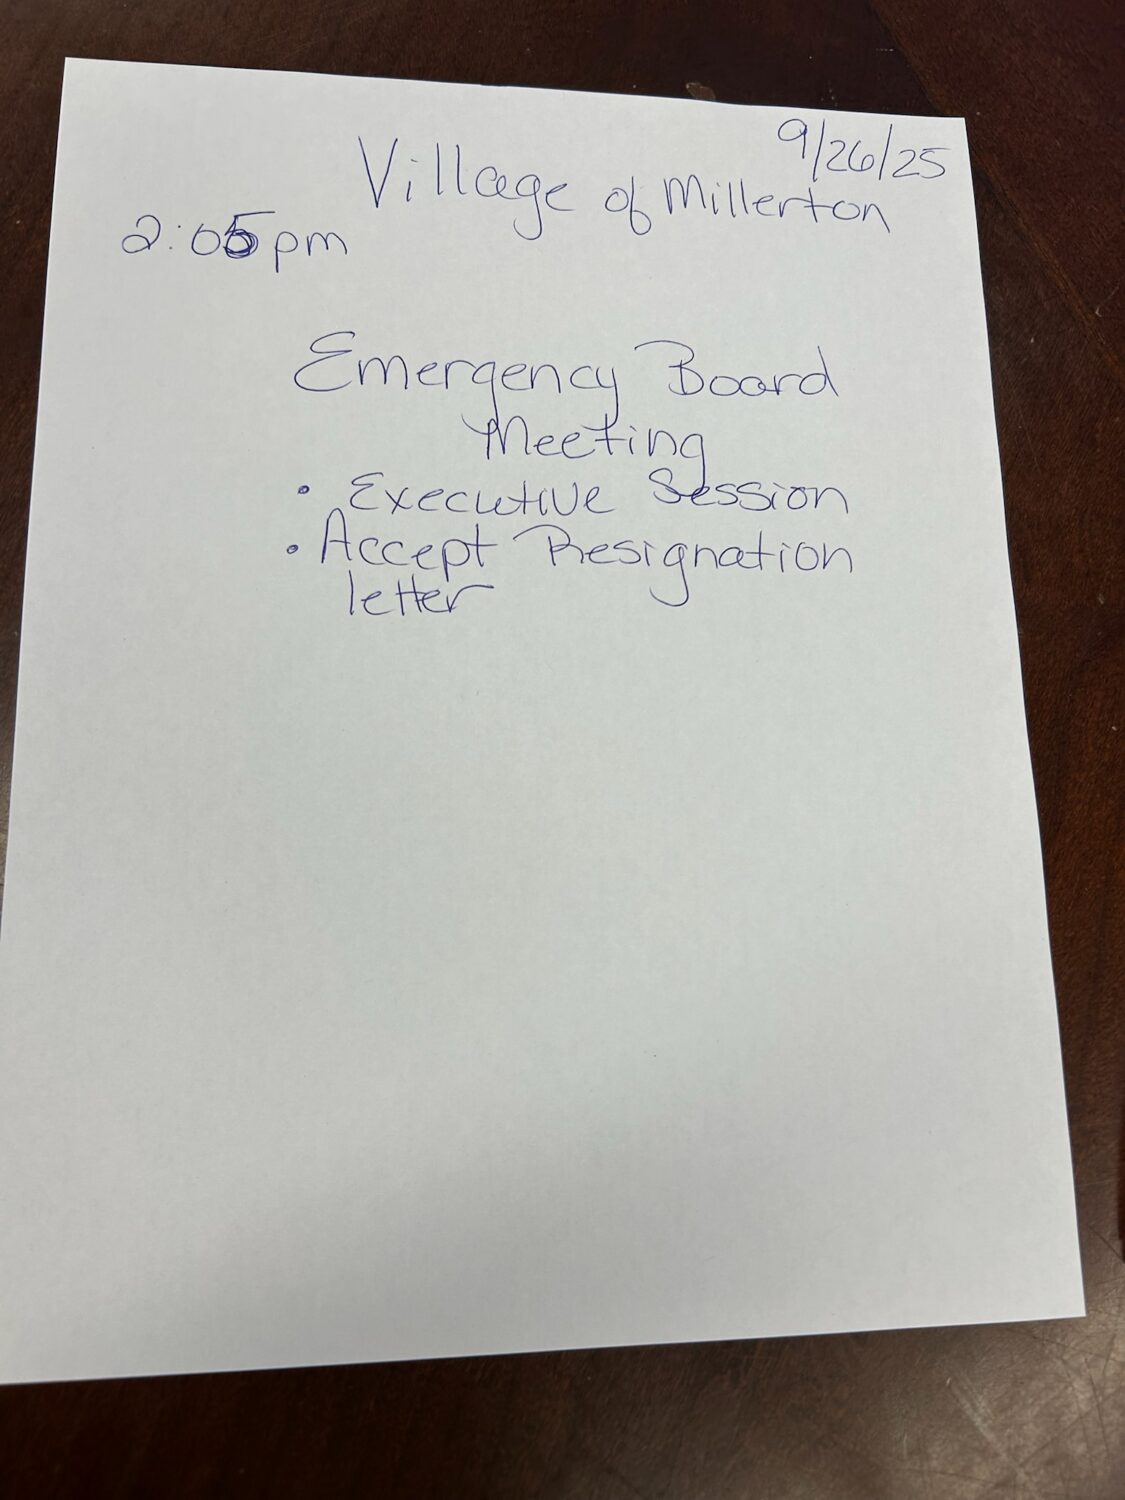 9/26/25
Village of Millerton
2:05pm
Emergency Board
Meeting
• Executive Session
• Accept Resignation
letter